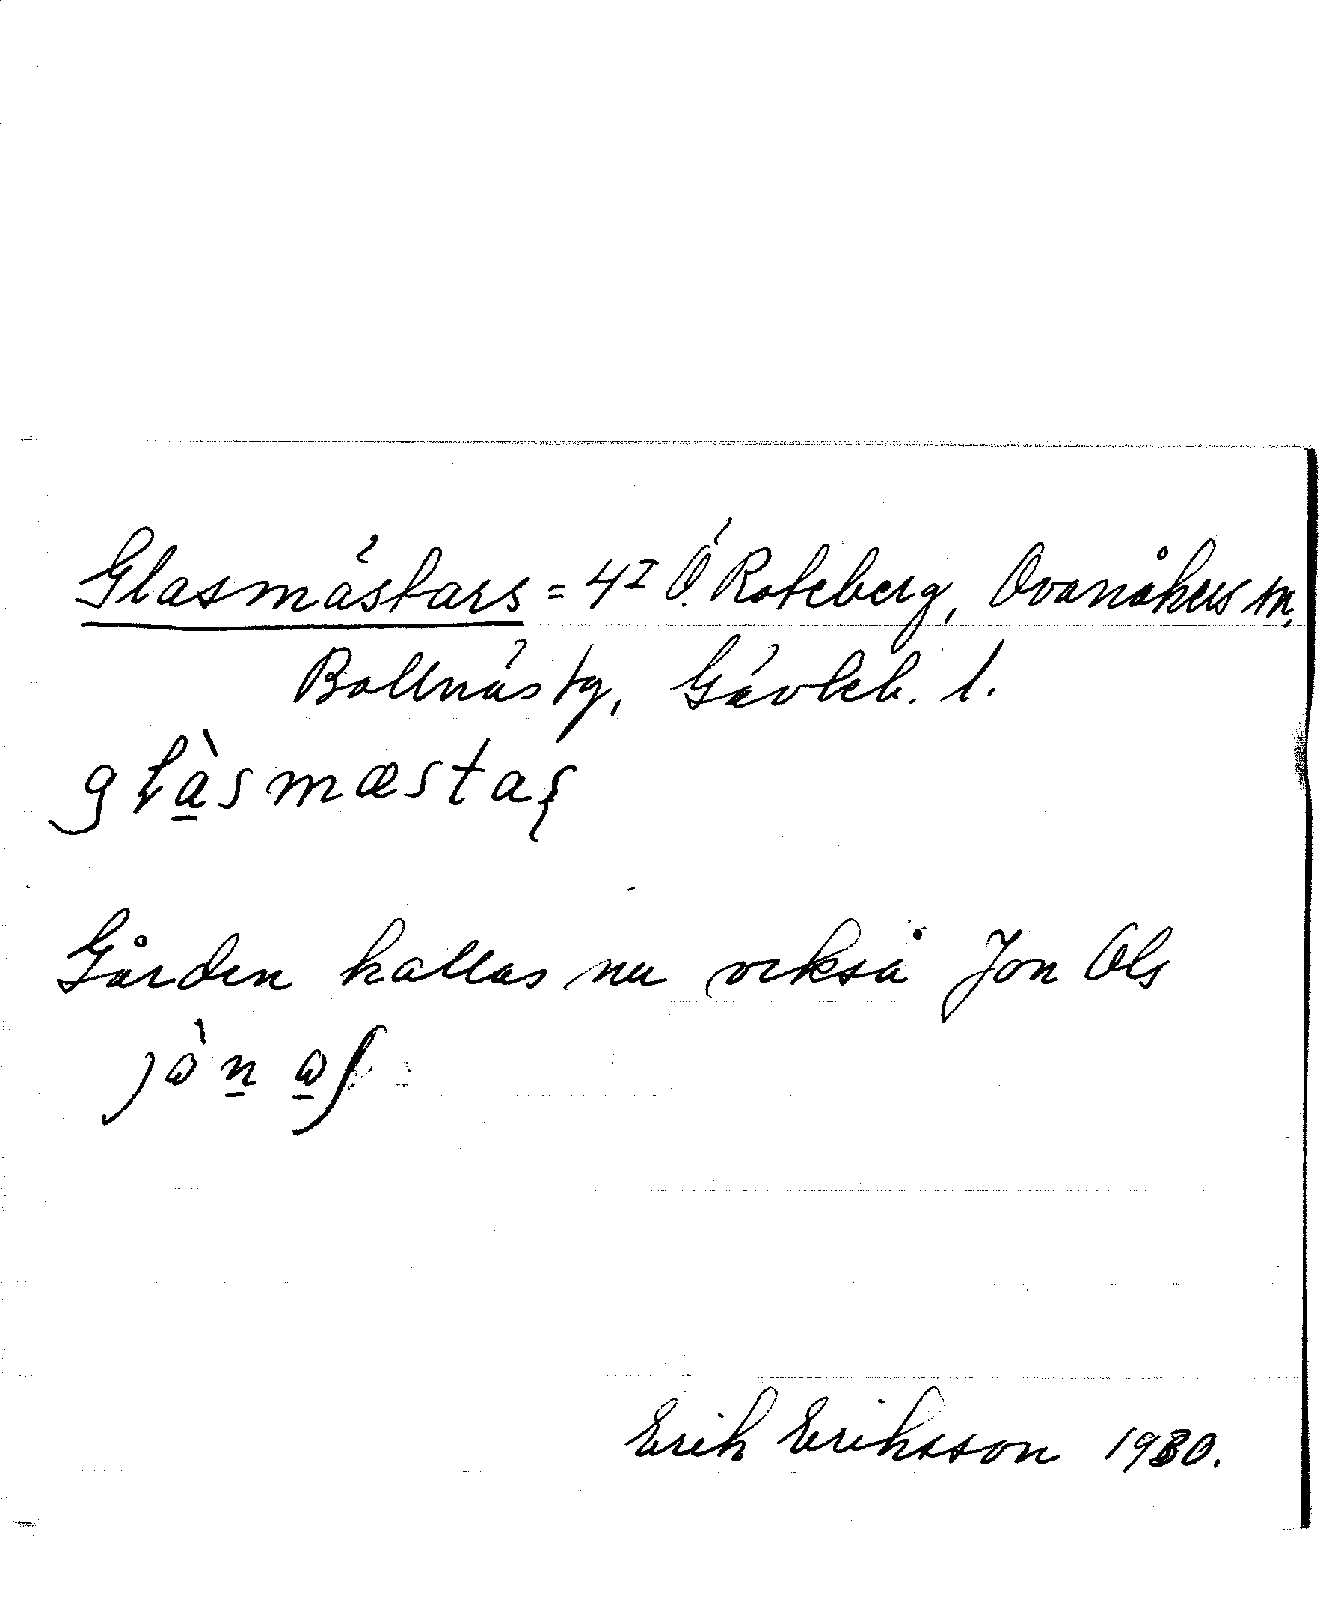 Glasmästars = 4I Ö. Roteberg, Ovanåkers sn,
Bollnäs tg, Gävleb. l.
glàsmæstaʂ
Gården kallas nu också Jon Ols
jòn
Erik Eriksson 1930.